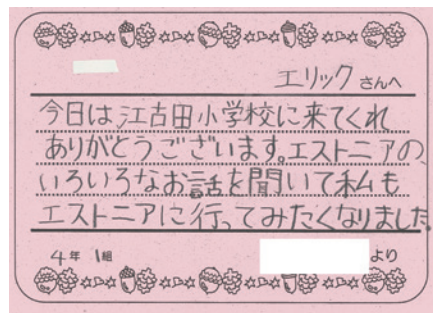 エリック さんへ
今日は江古田小学校に来てくれ
ありがとうございます。エストニアの
いろいろなお話を聞いて私も
エストニアに行ってみたくなりました。
4年 1組
より